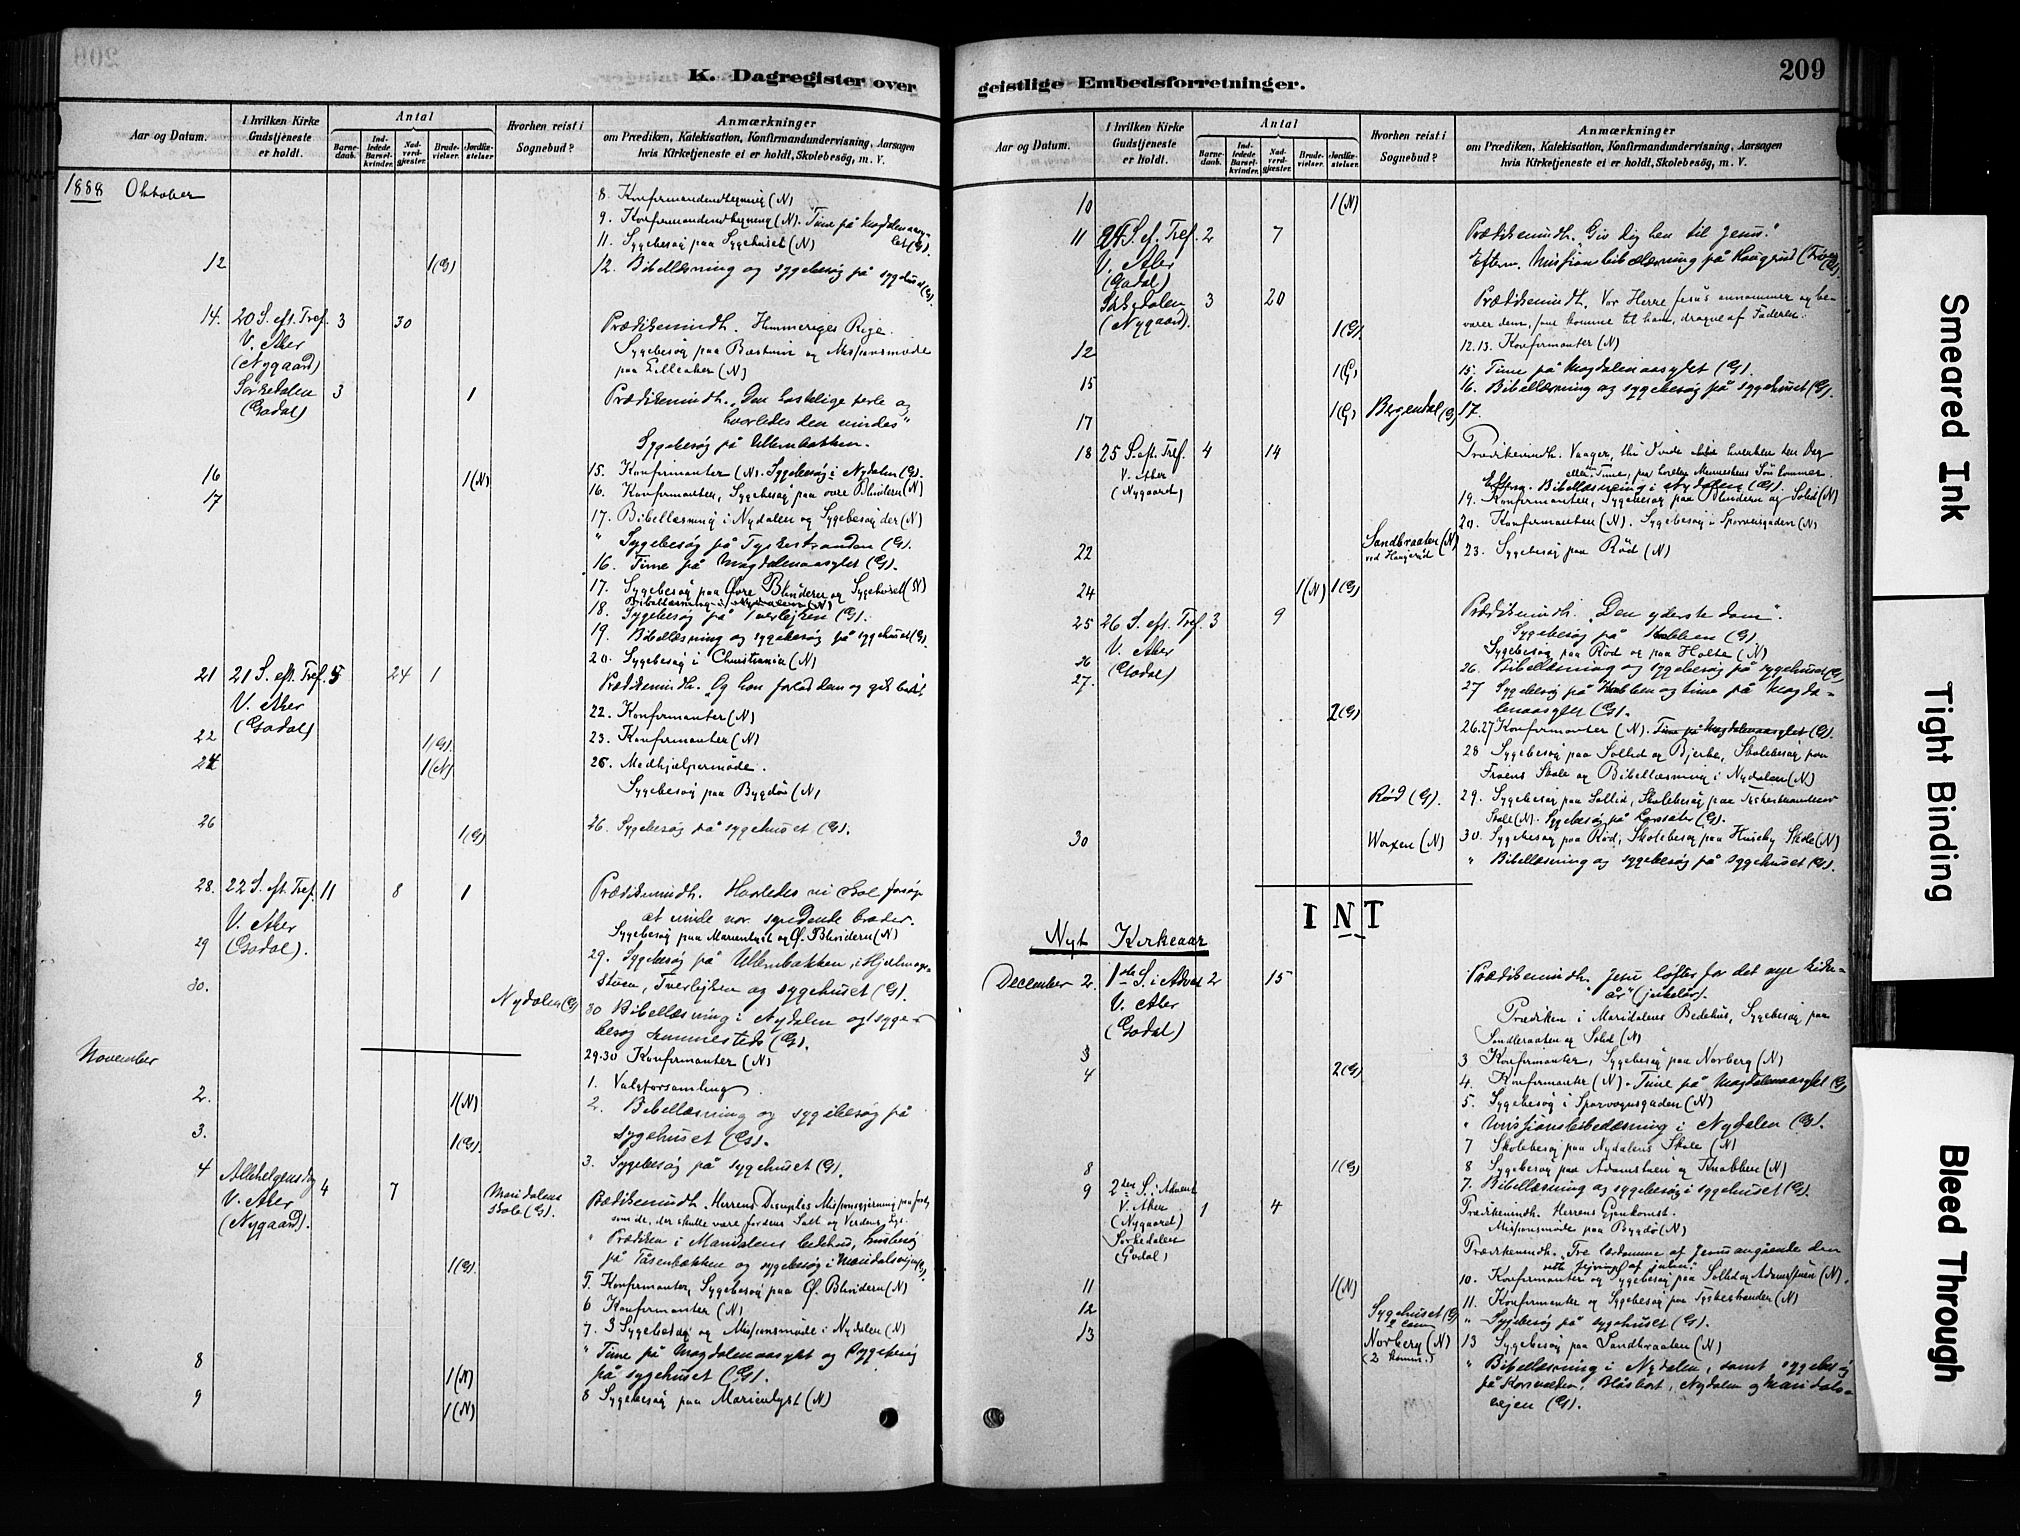 K. Dagregister over
Aar og Datum.
I hvilken Kirke Gudstjeneste er holdt.
Antal
Barnedaab.
Indledede Barselkvinder.
Nadverdgjester.
Brudevielser.
Jordfæstelser
Hvorhen reist i Sognebud?
Anmærkninger
om Prædiken, Katekisation, Konfirmandundervisning, Aarsagen
hvis Kirketjeneste ei er holdt, Skolebesøg, m. V.
1888 Oktober
8. Konfirmand (N)
9. Konfirmand (N). Time på Magdalenaasylet (G).
11. Sygebesøg paa Sygehuset (N)
12 1(G) 12. Bibellæsning og sygebesøg på sygehuset (G).
14. 20 S. eft. Tref. 3 30 Prædikenindh. Himmeriges Rige.
V. Aker Sygebesøg paa og Missionsmøde
(Nygaard) paa Lilleaker (N)
Sørkedalen 3 1 Prædikenindh. "Den kostelige perle og
(Godal) hvorledes den vindes"
Sygebesøg på Ullernbakken.
16 1(N) 15. Konfirmanter (N). Sygebesøg i Nydalen (G).
17 16. Konfirmanter, Sygebesøg paa øvre Blindern (N)
17. Bibellæsning i Nydalen og Sygebesøg der (N)
" Sygebesøg på Tyskestranden (G).
16. Time på Magdalenaasylet (G).
17. Sygebesøg paa Øvre Blindern og Sygehuset (N)
18. Sygebesøg på Tverlejren (G).
19. Bibellæsning og sygebesøg på sygehuset (G).
20. Sygebesøg i Christiania (N)
21 21 S. eft. Tref. 5 24 1 Prædikenindh. "Og han forlod dem og gik bort"
V. Aker 22. Konfirmanter (N)
(Godal)
22 1(G). 23. Konfirmanter (N)
24 1(N) 25. Medhjælpermøde.
Sygebesøg paa Bygdø (N)
26 1(G) 26. Sygebesøg på sygehuset (G).
28. 22 S. eft. Tref. 11 8 1 Prædikenindh. Hvorledes vi skal forsøge
V. Aker at vinde vor syndende broder.
(Godal). Sygebesøg paa Marienlyst og Ø. Blindern (N)
29 29. Sygebesøg på Ullernbakken, i
Tverlejren og sygehuset (G).
30. Nydalen (G) 30 Bibellæsning i Nydalen og sygebesøg
sammesteds (G).
November 29.30 Konfirmanter (N)
1. Valgforsamling
2. 1(N) 2. Bibellæsning og sygebesøg på
3. 1(G). sygehuset (G).
3. Sygebesøg på sygehuset (G).
4 Allehelgensdag 4 7 Maridalens Skole (G). Prædikenindh. Herrens Disciples Missionsgjerning
V. Aker som de, der skulle være Jordens Salt og Verdens Lys.
(Nygaard). " Prædiken i Maridalens bedehus, husbesøg
1(G). på Tåsenbakken og sygebesøg i Maridalsvejen (G).
5. Konfirmanter, Sygebesøg paa Ø. Blindern (N)
6 Konfirmanter (N)
7. 3 Sygebesøg og Missionsmøde i Nydalen (N)
" Time på Magdalenaasylet og Sygebesøg
8 1(N) på sygehuset (G).
9 1(N) 8 Sygebesøg paa Marienlyst (N)
geistlige Embedsforretninger.
209
Aar og Datum.
I hvilken Kirke Gudstjeneste er holdt.
Antal
Barnedaab.
Indledede Barselkvinder.
Nadverdgjester.
Brudevielser.
Jordfæstelser.
Hvorhen reist i Sognebud?
Anmærkninger
om Prædiken, Katekisation, Konfirmandundervisning, Aarsagen
hvis Kirketjeneste ei er holdt, Skolebesøg, m. V.
10 1(N)
11 24 S. ef. Tref. 2 7 Prædikenindh. "Giv dig hen til Jesus."
V. Aker Efterm. Missionsbibellæsning på Haugerud
(Godal)
Sørkedalen 3 20 Prædikenindh. Vor Herre Jesus annammer og bevarer
(Nygaard). dem, som komme til ham, dragne af Faderen.
12 1(G). 12.13. Konfirmanter (N)
15 1(G) 15. Time på Magdalenaasylet (G).
16. Bibellæsning og sygebesøg på sygehuset (G).
17 1(G) Bergendal (G) 17.
18 25 S. eft. Tref. 4 14 Prædikenindh. Vaager, thi I vide ikke hverken den Dag
V. Aker eller Time, paa hvilken Menneskens Søn kommer.
(Nygaard) Efterm. Bibellæsning i Nydalen (G).
19. Konfirmanter, Sygebesøg paa Blindern og Solid (N)
20. Konfirmanter (N). Sygebesøg i Sporveisgaden (N)
22 Sandbraaten (N) ved Haugerud 23. Sygebesøg paa Rød (N)
24 1(N) 1(G)
25 26 S. eft. Tref. 3 9 Prædikenindh. "Den yderste dom".
V. Aker Sygebesøg på (G).
(Godal) Sygebesøg paa Rød og paa Holte (N)
26 26. Bibellæsning og sygebesøg på sygehuset (G)
27. 27 Sygebesøg på og time på Magdalenaasylet (G).
2(G) 26.27 Konfirmanter (N). Time på Magdalenaasylet (G).
28 Sygebesøg paa Sollid og Bjerke, Skolebesøg paa
Frøens Skole og Bibellæsning i Nydalen (N)
Rød (G). 29. Sygebesøg paa Sollid, Skolebesøg paa Tyskestrandens
Skole (N). Sygebesøg på (G).
30 Voxen (N) 30. Sygebesøg paa Rød, Skolebesøg paa Huseby Skole (N)
" Bibellæsning og sygebesøg på sygehuset (G).
I N T
Nyt Kirkeaar
December 2. 1ste S. i Advent 2 15 Prædikenindh. "Jesu løfter for det nye kirkeår"
V. Aker Prædiken i Maridalens Bedehus, Sygebesøg paa
(Godal) Sandbraaten og Solid (N)
3 3 Konfirmanter, Sygebesøg paa Norberg (N)
4 2(G) 4. Konfirmanter (N). Time på Magdalenaasylet (G)
5. Sygebesøg i Sporvognsgaden (N)
" Missionsbibellæsning i Nydalen (G).
7 Skolebesøg paa Nydalens Skole (N)
8 1(G) 8 Sygebesøg paa Adamstuen og Knabben (N)
9 2den S. i Advent 7. Bibellæsning og sygebesøg i sygehuset (G).
V. Aker 1 4 Prædikenindh. Herrens Gjenkomst.
(Nygaard) Missionsmøde paa Bygdø (N).
Sørkedalen Prædikenindh. Tre lærdomme af Jesus angående den
(Godal) rette fejring af julen.
11 1(N) 10. Konfirmanter og Sygebesøg paa Sollid og Adamstuen (N).
12 Sygehuset (G) 11. Konfirmanter og Sygebesøg paa Tyskestranden (N)
" Sygebesøg på sygehuset (G).
13 Norberg (N) (2 komm.) 13 Sygebesøg paa Sandbraaten (N)
" Bibellæsning i Nydalen, samt sygebesøg
på Korsvolden, Blåsbort, Nydalen og Maridalsvejen (G).
Smeared Ink
Tight Binding
Bleed Through